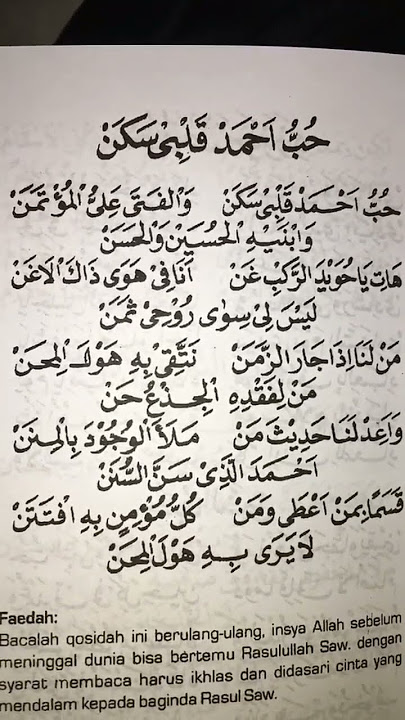 حُبُّ اَحْمَدْ قَلْبِىْ سَكَنْ
حُبُّ اَحْمَدْ قَلْبِىْ سَكَنْ وَالْفَتَى عَلِىُّ الْمُؤْتَمَنْ
وَابْنَيْهِ الْحُسَيْنِ وَالْحَسَنْ
هَاتِ يَاحُوَيْدِ الرَّكْبِ غَنْ اَنَا فِىْ هَوَى ذَاكَ الْاَغَنْ
لَيْسَ لِىْ سِوٰى رُوْحِىْ ثَمَنْ
مَنْ لَنَا اِذَا جَارَ الزَّمَنْ نَتَّقِى بِهِ هَوْلَ الْمِحَنْ
مَنْ لِفَقْدِهِ الْجِذْعُ حَنْ
وَاعِدْ لَنَا حَدِيْثَ مَنْ مَلَأَ الْوُجُوْدَ بِالْمِنَنْ
اَحْمَدَ الَّذِىْ سَنَّ السُّنَنْ
قَسَمًا بِمَنْ اَعْطَى وَمَنْ كُلُّ مُؤْمِنٍ بِهِ افْتَتَنْ
لَا يَرَى بِهِ هَوْلَ الْمِحَنْ
Faedah:
Bacalah qosidah ini berulang-ulang, insya Allah sebelum
meninggal dunia bisa bertemu Rasulullah Saw. dengan
syarat membaca harus ikhlas dan didasari cinta yang
mendalam kepada baginda Rasul Saw.